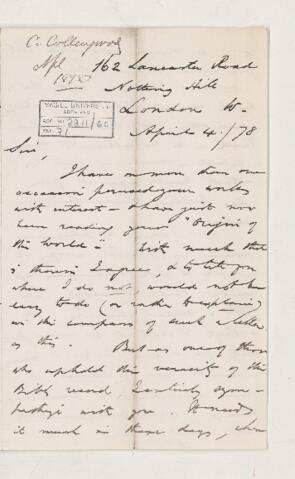 C. Collingwood
Apl
1878
162 Lancaster Road
Notting Hill
London W.
April 4. /78
Sir,
I have on more than one
occasion perused your works
with interest & have just now
been reading your "Origin of
the World" - With much that
is therein I agree, & to tell you
where I do not, would not be
easy to do (or rather to explain)
in the compass of such a letter
as this. But as one of those
who uphold the veracity of the
Bible record, I entirely sym-
pathize with you. It needs
it much in these days, when